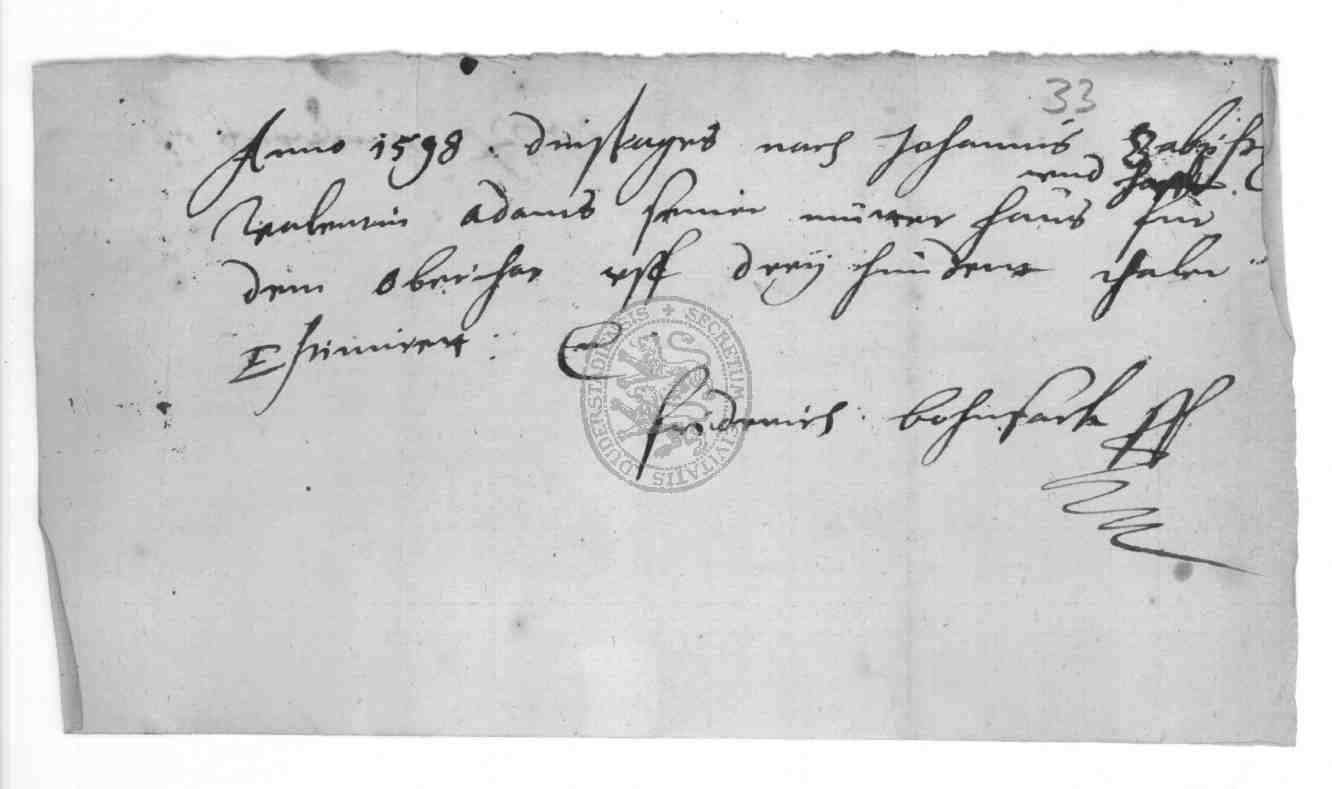 33
Anno 1598. dinstages nach Johannis Babtist
vnd
Valentin Adams seiner mutter haus fur
dem oberthor vff drey hundert thaler
Estimirert:
friderich bohnsack
SECRETUM CIVITATIS DUDERSTADIENSIS